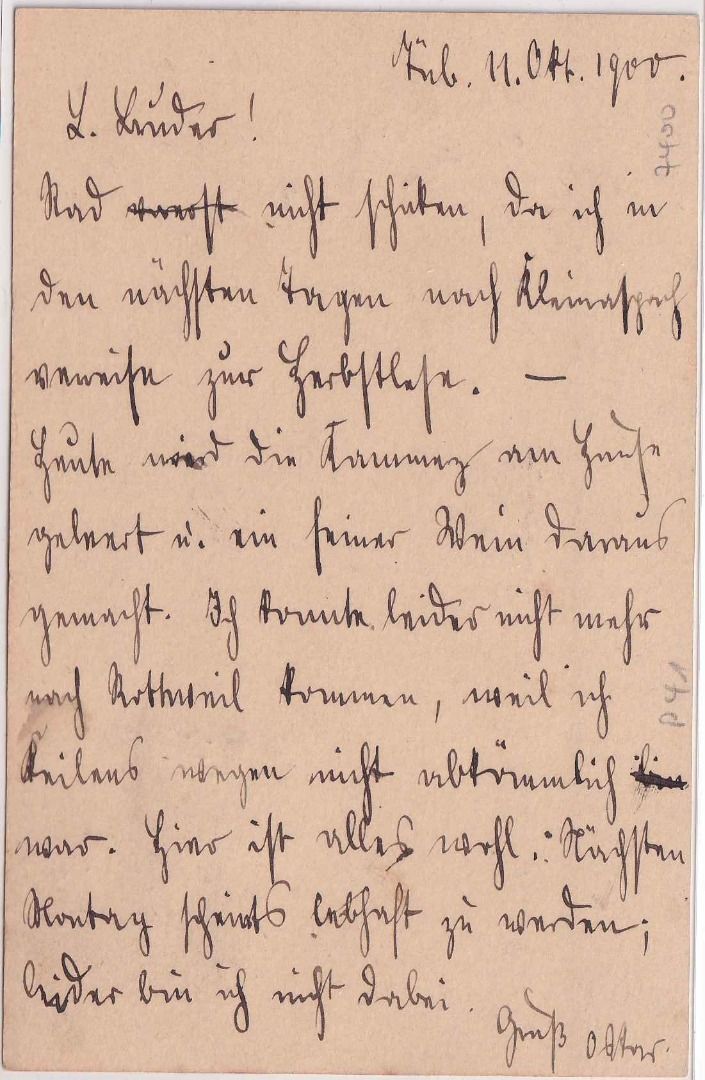 Tüb. 11. Okt. 1900.
L. Bruder!
Rad nicht schicken, da ich in
den nächsten Tagen nach Kleinaspach
verreise zur Herbstlese. —
Heute wird die Kammerz am Hause
geleert u. ein feiner Wein daraus
gemacht. Ich konnte leider nicht mehr
nach Rottweil kommen, weil ich
Keilens wegen nicht abkömmlich bin
war. Hier ist alles wohl. Nächsten
Montag scheints lebhaft zu werden;
leider bin ich nicht dabei.
Gruß Oskar.
7400